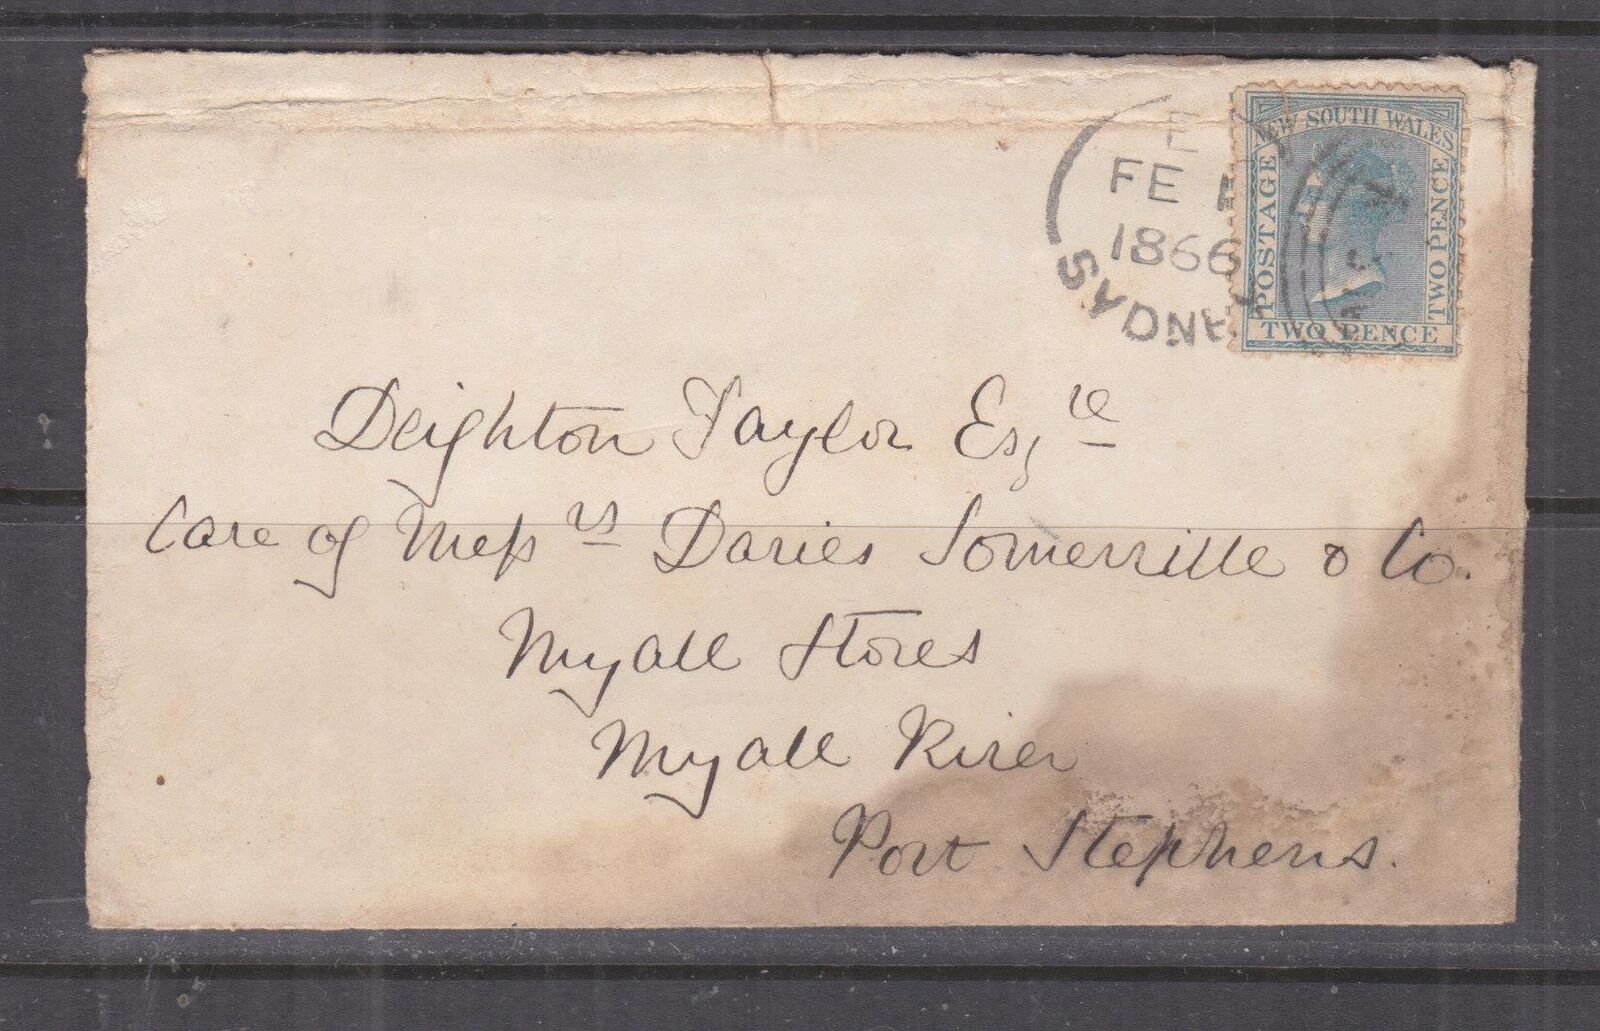 NEW SOUTH WALES
POSTAGE
TWO PENCE
TWO PENCE
FE
1866
SYDNEY
Deighton Taylor Esqre
Care of Messrs Davies Somerville & Co.
Myall Stores
Myall River
Port Stephens.